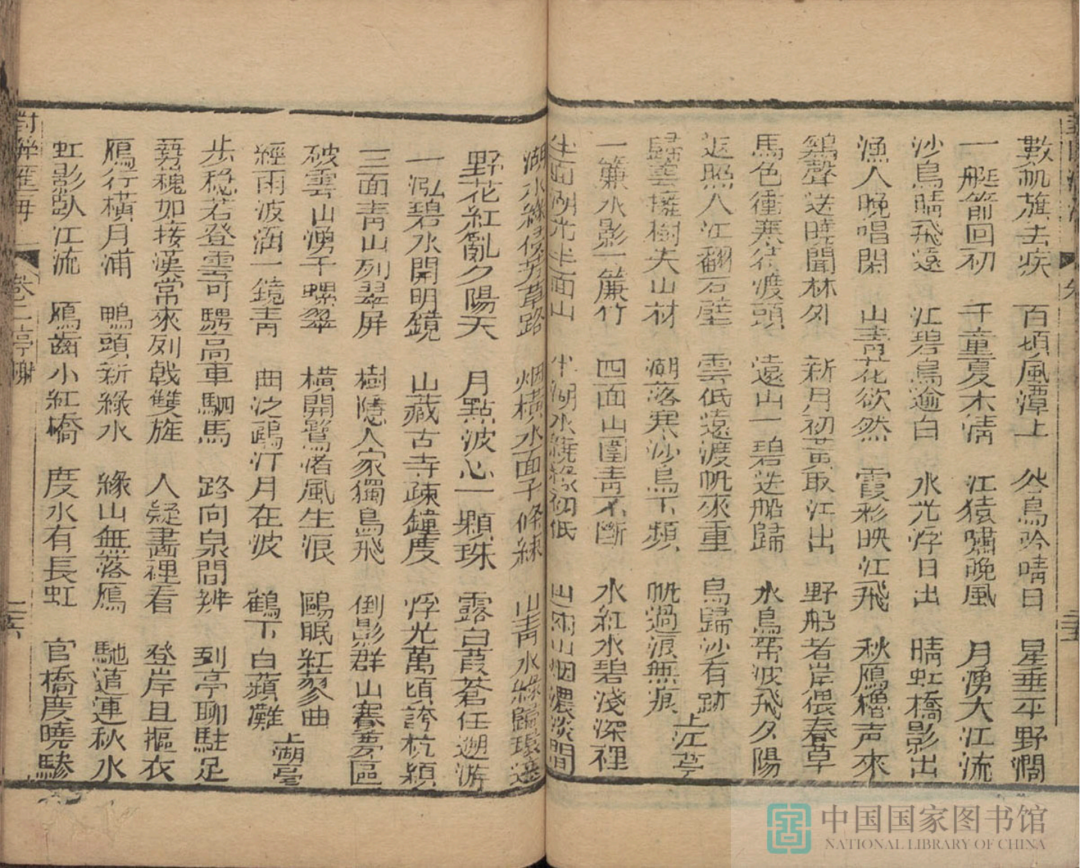 數帆旗去疾　百頃風潭上　鳥吟晴日　星垂平野濶
一艇箭回初　千重夏木清　江猿嘯晚風　月湧大江流
沙鳥晴飛遠　江碧鳥逾白　水光浮日出　晴虹橋影出
漁人晚唱閑　山青花欲然　霞彩映江飛　秋鴈櫓声來
鷄聲送曉聞林外　新月初黃取江出　野船着岸偎春草
馬色衝寒待渡頭　遠山一碧送船歸　水鳥帶波飛夕陽
返照入江翻石壁　雲低遠渡帆來重　鳥歸沙有跡
歸雲擁樹失山村　潮落寒沙鳥下頻　帆過浪無痕　上江亭
一簾水影一簾竹　四面山圍青不斷　水紅水碧淺深裡
半面湖光半面山　半湖水繞綠初低　山南山烟濃淡間
湖水綠侵芳草路　烟橫水面千條練　山青水綠歸環遶
野花紅亂夕陽天　月點波心一顆珠　露白葭蒼任遡游
一泓碧水開明鏡　山藏古寺疎鐘度　浮光萬頃誇杭潁
三面青山列翠屏　樹隱人家獨鳥飛　倒影群山塞區
破雲山湧千螺翠　橫開鷺渚風生浪　鷗眠紅蓼曲
經雨波涵一鏡青　曲泛鷗汀月在波　鶴下白蘋灘　上湖亭
步穩若登雲　奇駟高車駟馬　路向泉間辨　到亭聊駐足
勢巍如接漢　常來列戟雙旌　人疑畵裡看　登岸且摳衣
鴈行橫月浦　鴨頭新綠水　緣山無落鴈　馳道連秋水
虹影臥江流　鴈齒小紅橋　度水有長虹　官橋度曉驂
對類 卷二 亭榭 三六
卷 三五
中国国家图书馆
NATIONAL LIBRARY OF CHINA